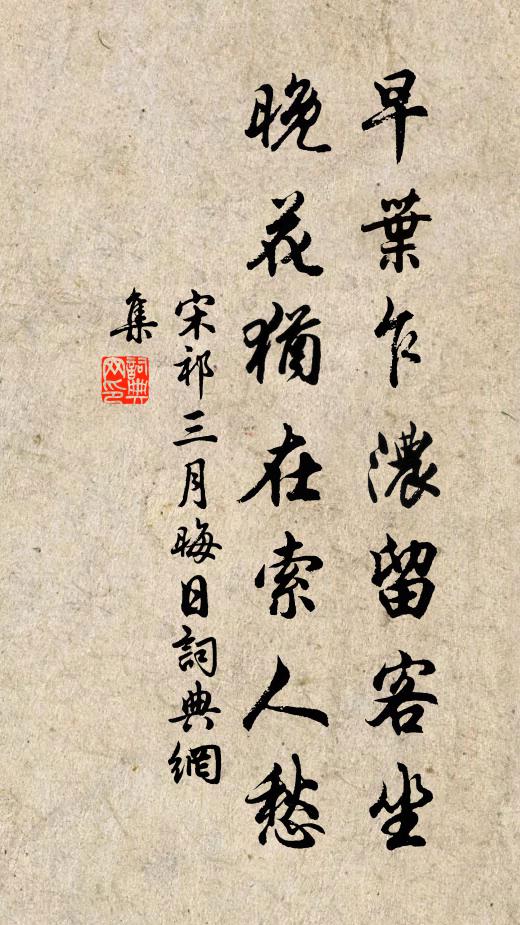 早葉乍濃留客坐
晚花猶在索人愁
宋祁三月晦日詞典網
集
詞典
网印